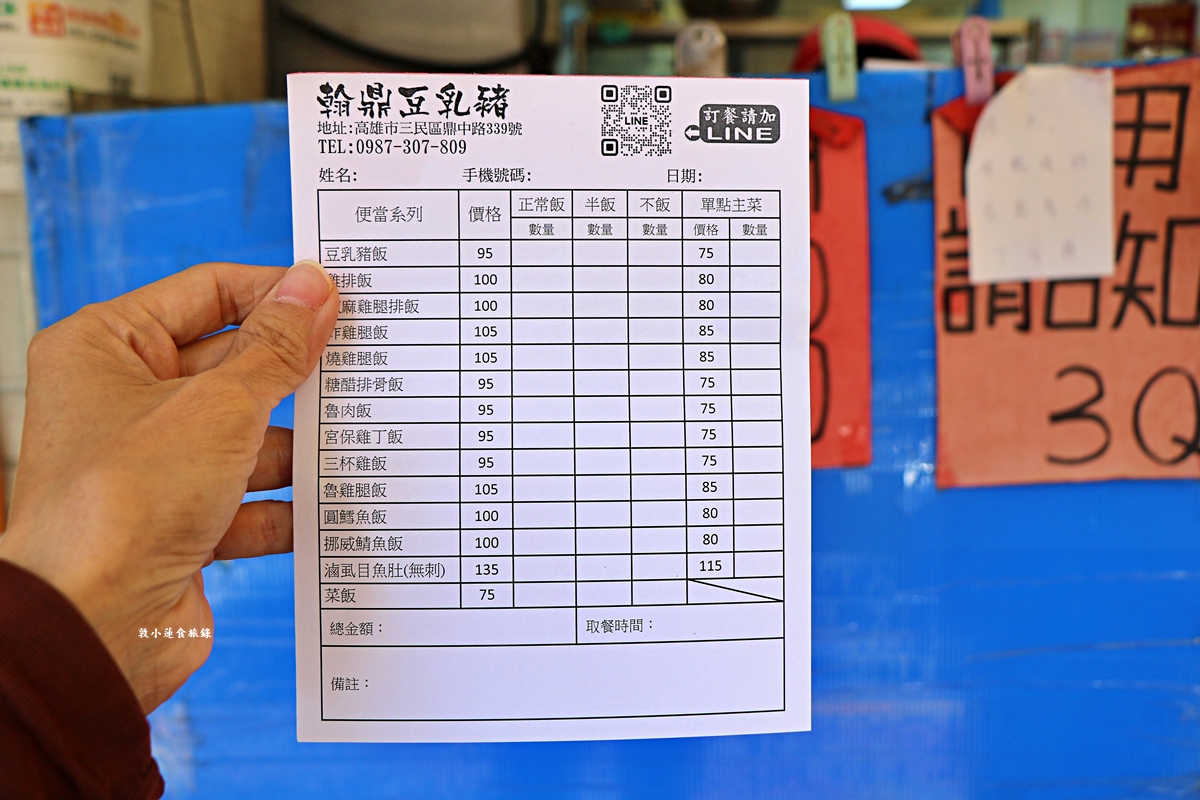 翰鼎豆乳豬
地址:高雄市三民區鼎中路339號
TEL:0987-307-809
LINE
訂餐請加
LINE
姓名: 手機號碼: 日期:
便當系列 價格 正常飯 半飯 不飯 單點主菜
數量 數量 數量 價格 數量
豆乳豬飯 95 75
排飯 100 80
麻雞腿排飯 100 80
炸雞腿飯 105 85
燒雞腿飯 105 85
糖醋排骨飯 95 75
魯肉飯 95 75
宮保雞丁飯 95 75
三杯雞飯 95 75
魯雞腿飯 105 85
圓鱈魚飯 100 80
挪威鯖魚飯 100 80
滷虱目魚肚(無刺) 135 115
菜飯 75
總金額： 取餐時間：
備註：
用
請告知
3Q
敦小蓮食旅錄